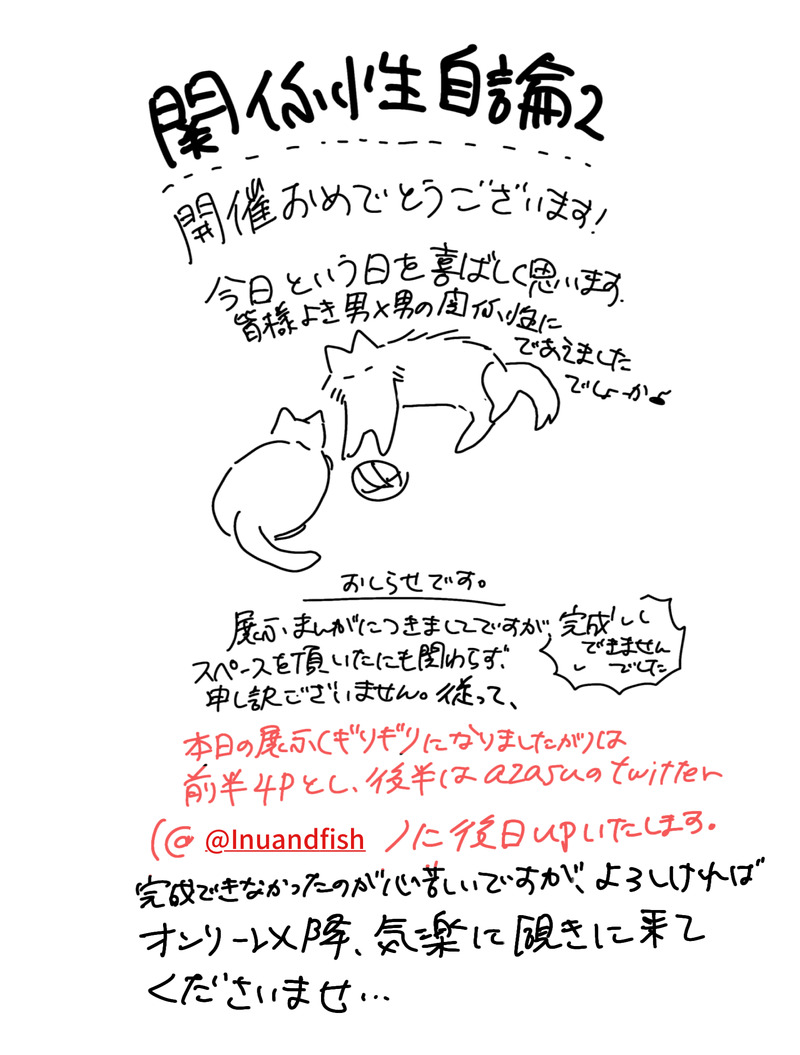 関係性自論2
開催おめでとうございます!
今日という日を喜ばしく思います。
皆様よき男×男の関係性に
であえました
でしょーか♪
おしらせです。
展示まんがにつきましてですが、完成しし
できません
でした
スペースを頂いたにも関わらず、
申し訳ございません。従って、
本日の展示(ギリギリになりましたがりは
前半4Pとし、後半はazasuのtwitter
(@ @Inuandfish )に後日upいたします。
完成できなかったのが心苦しいですが、よろしければ
オンリー以降、気楽に覗きに来て
くださいませ…